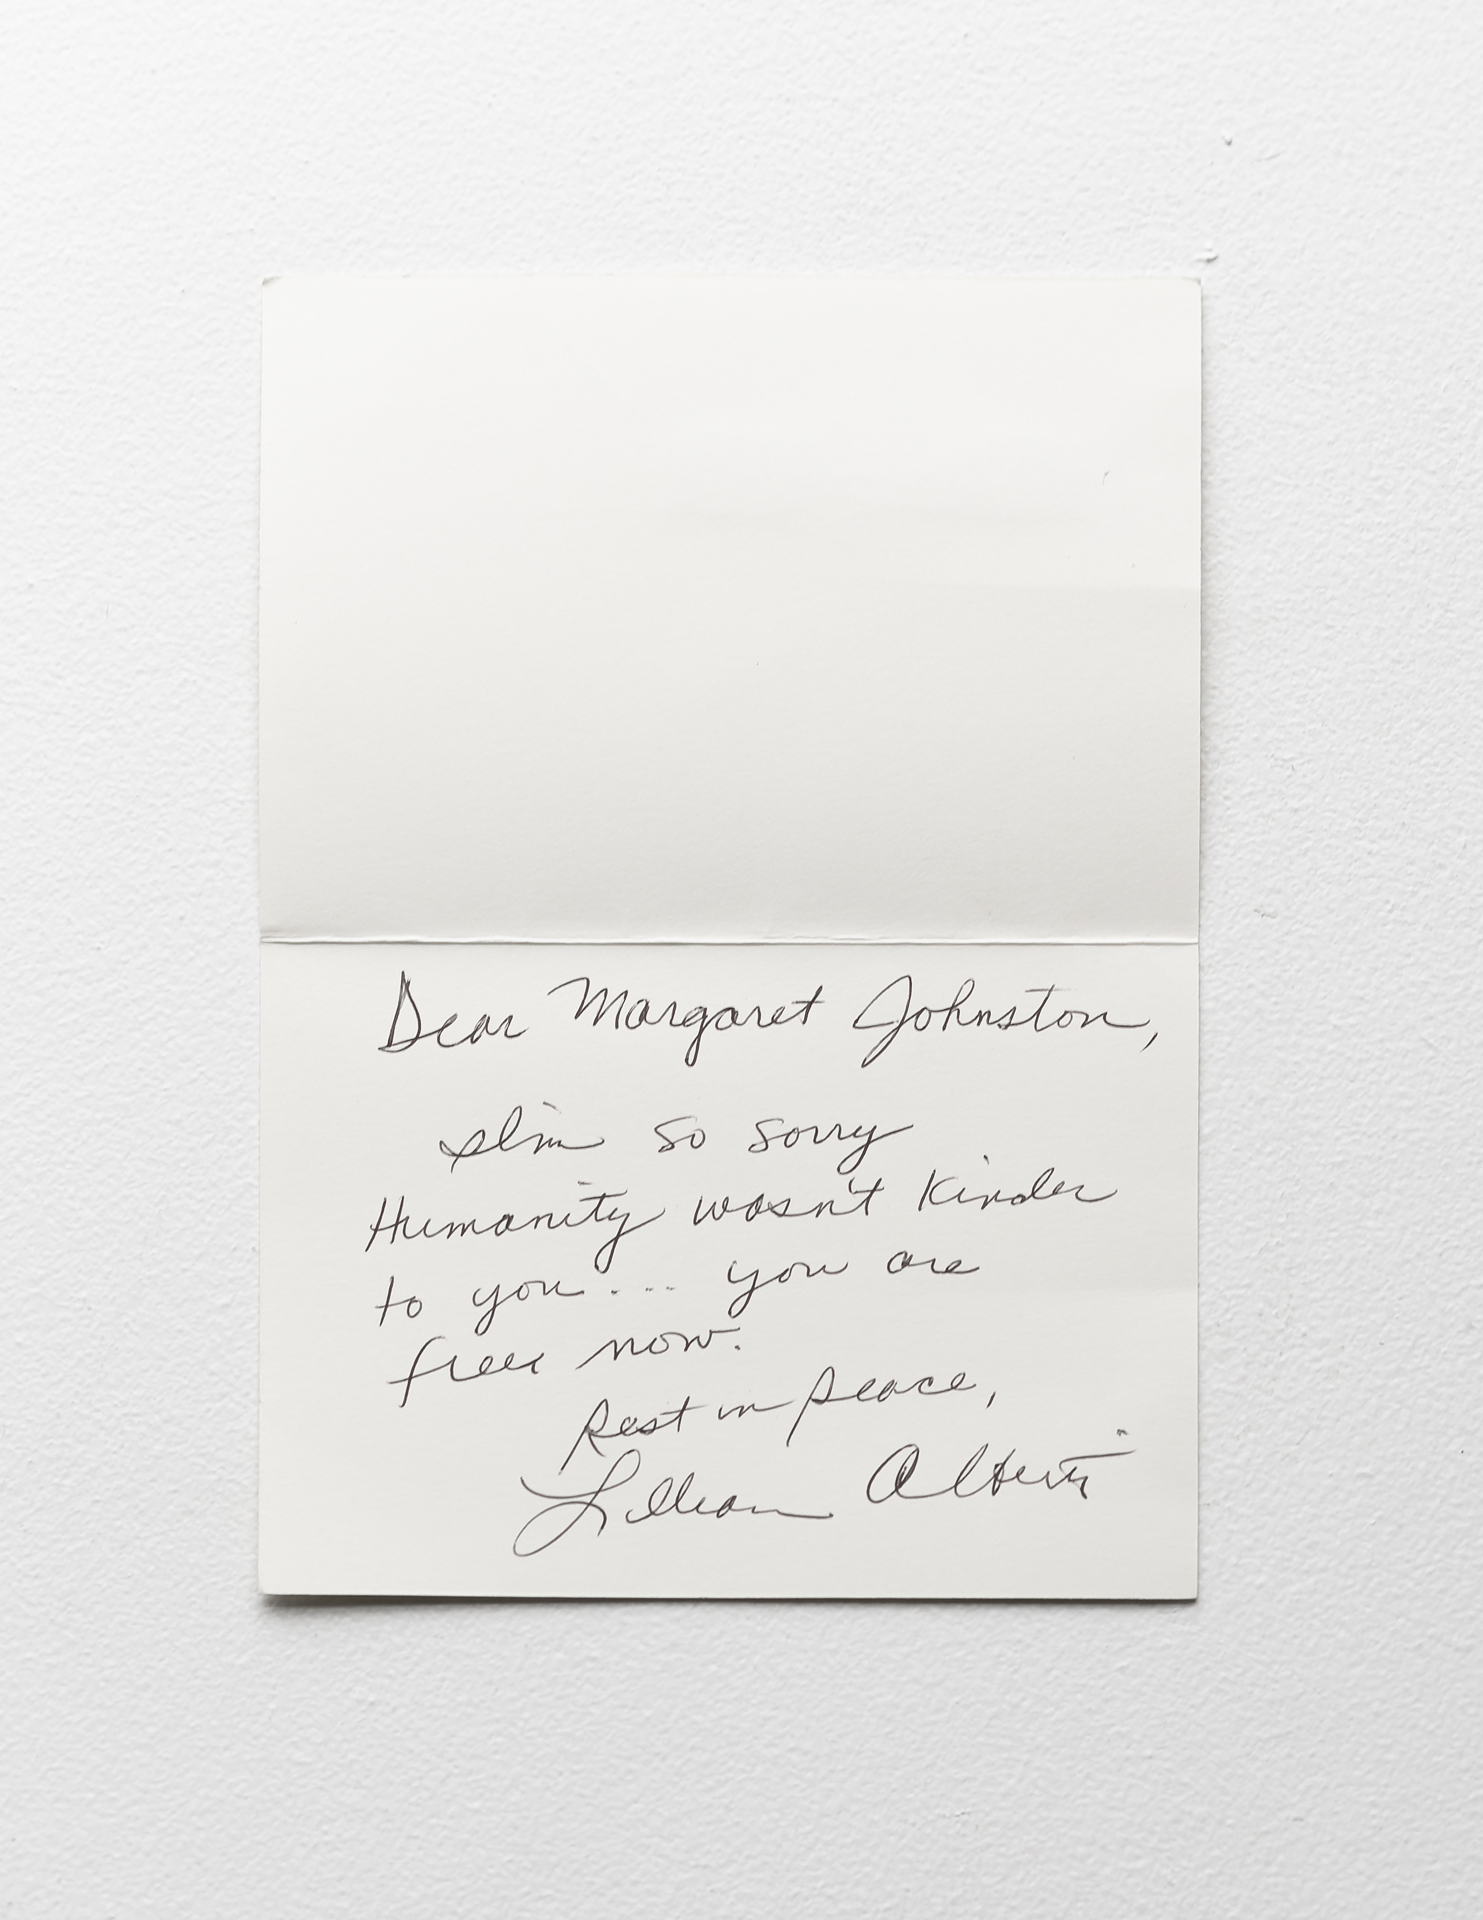 Dear Margaret Johnston,
I'm so sorry
Humanity wasn't kinder
to you... you are
free now.
Rest in peace,
Lillian Alberti